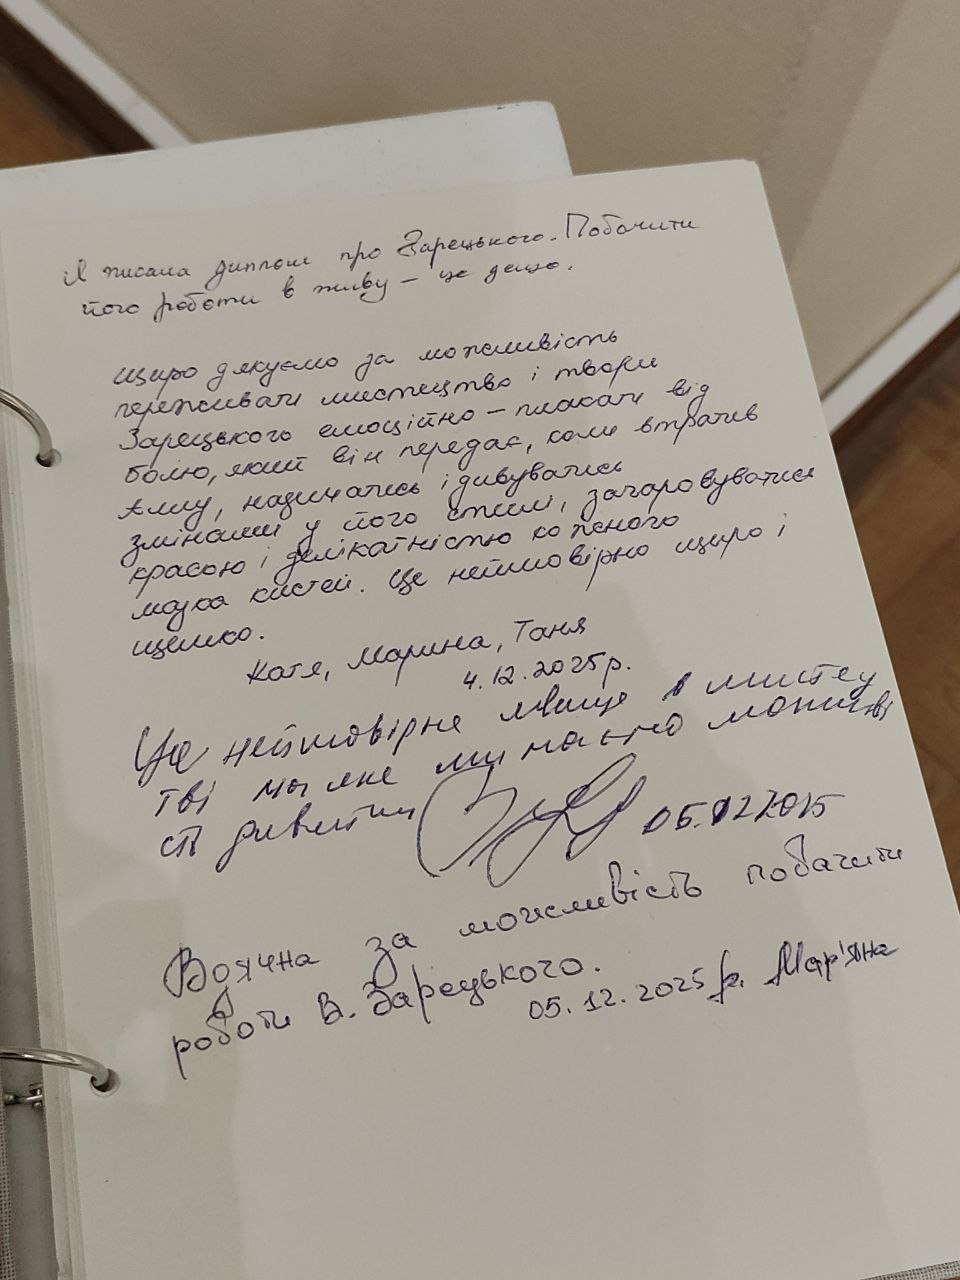 Я писала диплом про Зарецького. Побачити
його роботи в живу – це дещо.
Щиро дякуємо за можливість
переживати мистецтво і твори
Зарецького емоційно – плакати від
болю, який він передає, коли втратив
Аллу, надихатись і дивуватись
змінами у його стилі, зачаровуватися
красою і делікатністю кожного
мазка кистей. Це неймовірно щиро і
щемко.
Катя, Марина, Таня
4.12.2025р.
Це неймовірне явище в мистец
тві на яке ми маємо можливі
сть дивитим
05.12 2025
Вдячна за можливість побачити
роботи В. Зарецького.
05.12.2025 р. Мар'яна